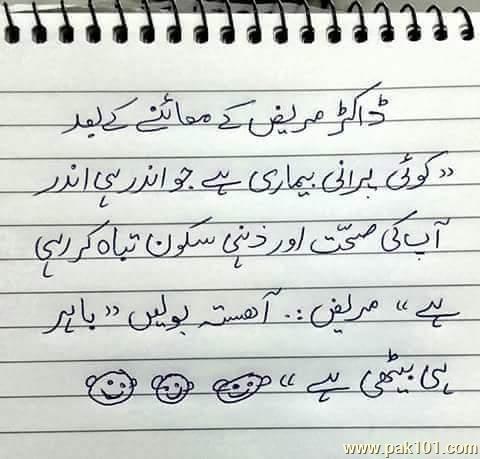 ڈاکٹر مریض کے معائنے کے بعد
"کوئی پرانی بیماری ہے جو اندر ہی اندر
آپ کی صحّت اور ذہنی سکون تباہ کر رہی
ہے" مریض :. آھستہ بولیں "باہر
ہی بیٹھی ہے"
www.pak101.com